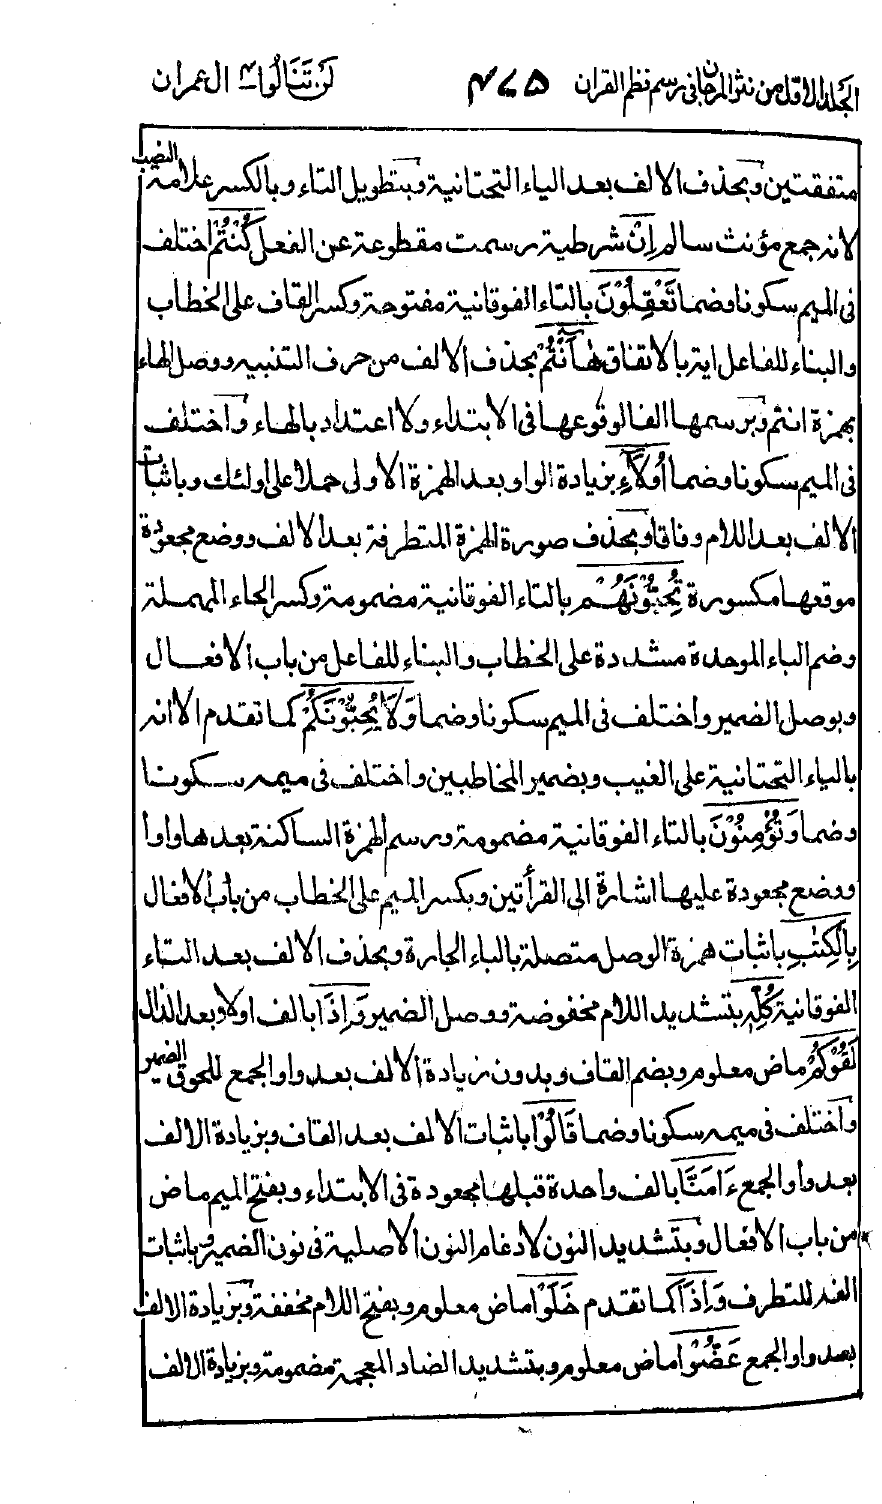 الجلد الاول من نثر المرجان فى رسم نظم القران ٤٧٥ لن تنالوا ٤ ال عمران
متفقتين وبحذف الالف بعد الياء التحتانية وبتطويل التاء وبالكسر علامة النصب
لانه جمع مؤنث سالم اِنْ شرطية رسمت مقطوعة عن الفعل كُنْتُمْ اختلف
فى الميم سكونا وضما تَعْقِلُوْنَ بالتاء الفوقانية مفتوحة وكسر القاف على الخطاب
والبناء للفاعل اية بالاتفاق هٰٓاَنْتُمْ بحذف الالف من حرف التنبيه ووصل الهاء
بهمزة انتم وبرسمها الفا لوقوعها فى الابتداء ولا اعتداد بالهاء واختلف
فى الميم سكونا وضما اُولَآءِ بزيادة الواو بعد الهمزة الاولى حملا على اولئك وباثبات
الالف بعد اللام وفاقا وبحذف صورة الهمزة المتطرفة بعد الالف ووضع مجعودة
موقعها مكسورة تُحِبُّوْنَهُمْ بالتاء الفوقانية مضمومة وكسر الحاء المهملة
وضم الباء الموحدة مشددة على الخطاب والبناء للفاعل من باب الافعال
وبوصل الضمير واختلف فى الميم سكونا وضما وَلَا يُحِبُّوْنَكُمْ كما تقدم الا انه
بالياء التحتانية على الغيب وبضمير المخاطبين واختلف فى ميمه سكونا
وضما وَتُؤْمِنُوْنَ بالتاء الفوقانية مضمومة ورسم الهمزة الساكنة بعدها واوا
ووضع مجعودة عليها اشارة الى القرأتين وبكسر الميم على الخطاب من باب الافعال
بِالْكِتٰبِ باثبات همزة الوصل متصلة بالباء الجارة وبحذف الالف بعد التاء
الفوقانية كُلِّهٖ بتشديد اللام مخفوضة ووصل الضمير وَاِذَا بالف اولا وبعد الذال
لَقُوْكُمْ ماض معلوم وبضم القاف وبدون زيادة الالف بعد واو الجمع للحوق الضمير
واختلف فى ميمه سكونا وضما قَالُوْا باثبات الالف بعد القاف وبزيادة الالف
بعد واو الجمع ءَامَنَّا بالف واحدة قبلها مجعودة فى الابتداء وبفتح الميم ماض
من باب الافعال وبتشديد النون لادغام النون الاصلية فى نون الضمير وباثبات
الفه للتطرف وَاِذَا كما تقدم خَلَوْا ماض معلوم وبفتح اللام مخففة وبزيادة الالف
بعد واو الجمع عَضُّوْا ماض معلوم وبتشديد الضاد المعجمة مضمومة وبزيادة الالف